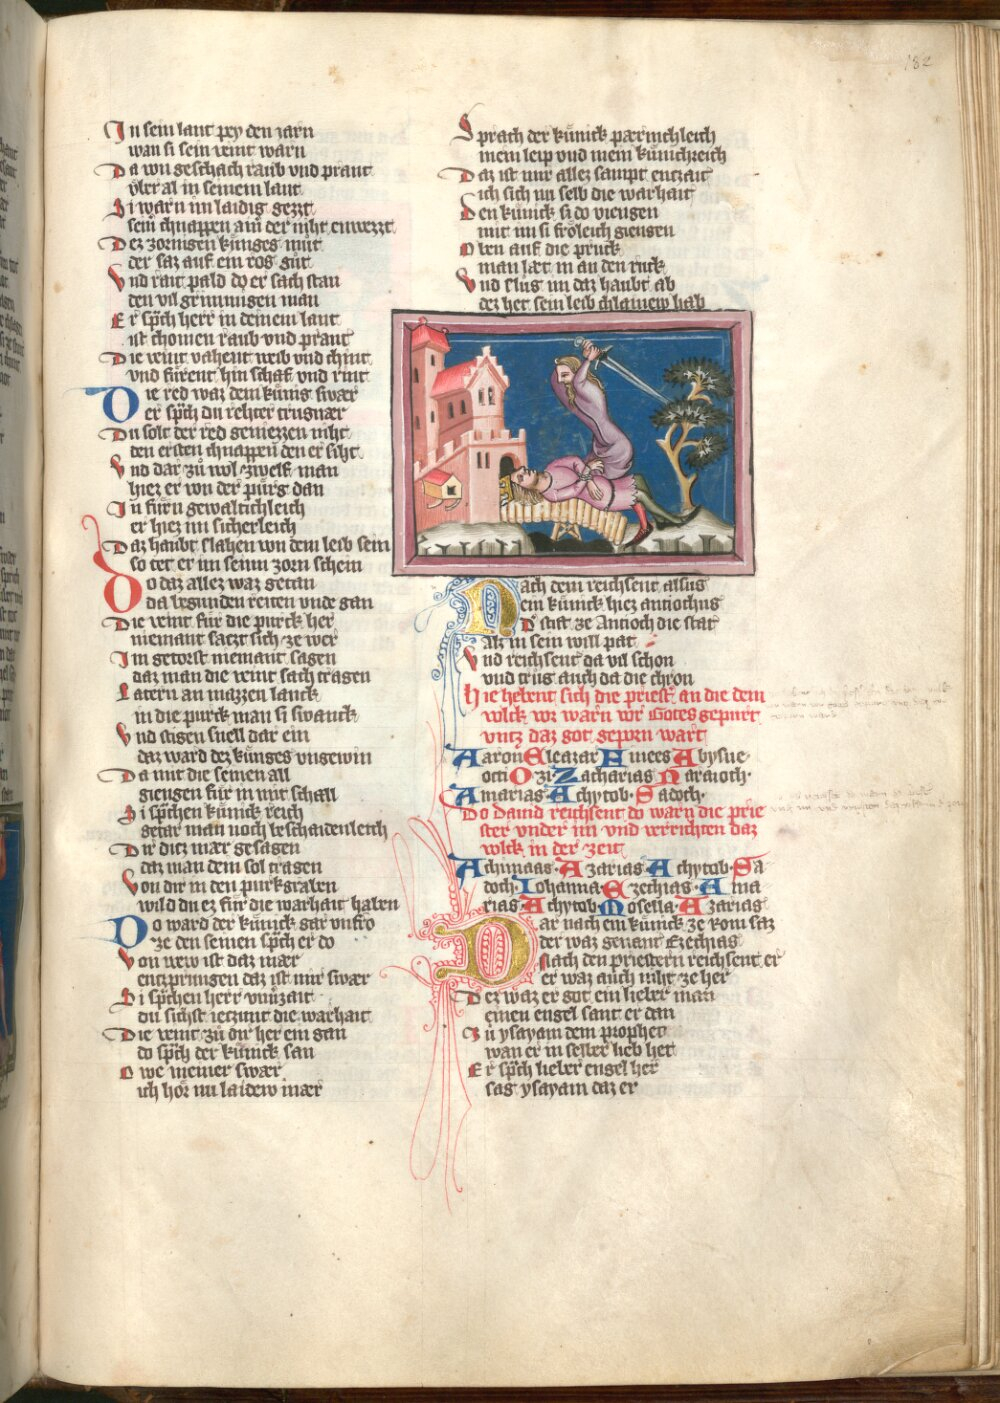 182
In sein lant pey den iarn
wan si sein veint warn
Da von geschach raub vnd prant
vber al in seinem lant
Si warn im laidig gezzt
sein chnappen ainr der niht enwezzt
Dez zornigen kuniges mut
der saz auf ein ros gut
Vnd rait pald do er sach stan
den vil grimmigen man
Er sp̄ch herr in deinem lant
ist chomen raub vnd prant
Die veint vahent weib vnd chint
vnd furent hin schaf vnd rint
Die red waz dem kunig swær
er sp̄ch du rehter trugnær
Du solt der red geniezzen niht
den ersten chnappen den er siht
Vnd dar zu wol zwelf man
hiez er von der purg dan
In furn gewaltichleich
er hiez im sicherleich
Daz haubt slahen von dem leib sein
so tet er im seinn zorn schein
Do daz allez waz getan
da begunden reiten vnde gan
Die veint fur die purck her
niemant satzt sich ze wer
Im getorst niemant sagen
daz man die veint sach tragen
Latern an mazzen lanck
in die purck man si swanck
Vnd stigen snell dar ein
daz ward dez kunges vngewin
Da mit die seinen all
giengen fur in mit schall
Si sp̄chen kunick reich
getar man noch beschaidenleich
Dir ditz mær gesagen
daz man dem sol tragen
Von dir in den purkgraben
wild du ez fur die warhait haben
Do ward der kunick gar vnfro
ze den seinen sp̄ch er do
Von new ist daz mær
entzpringen daz ist mir swær
Si sp̄chen herr vnuerzait
du sichst ietzunt die warhait
Die veint zu dir her ein gan
do sp̄ch der kunick san
O we meiner swær
ich hor nu laidew mær
Sprach der kunick pærmchleich
mein leip vnd mein kunichreich
Daz ist mir allez sampt entzait
ich sich im selb die warhait
Den kunick si do viengen
mit im si froleich giengen
Oben auf die pruck
man lært in an den ruck
Vnd slug im daz haubt ab
dez het sein leib chlainew hab
Nach dem reichsent alsus
ein kunick hiez antiochus
D̄ stift ze Antioch die stat
Alz in sein will pat
Vnd reichsent da vil schon
vnd trug auch da die chron
Hie hebent sich die priest̄ an die dem
volck vor warn vor Gotes gepurt
vntz daz got geporn wart
Aaron Eleazar Finees Abysue
occi Ozi Zacharias Naraioth
Amarias Achytob Sadoch
Do Dauid reichsent do warn die prie
ster vnder im vnd verrichten daz
volck in der zeit
Achimaas Azarias Achytob Sa
doch Iohanna Ezechias Ama
rias Achytob Mosella Azarias
Dar nach ein kunick ze Rom saz
der waz genant Ezechias
Nach den priestern reichsent er
er waz auch niht ze her
Dez waz er got ein lieber man
einen engel sant er dan
Zu ysayam dem prophet
wan er in selber lieb het
Er sp̄ch lieber engel her
sag ysayam daz er